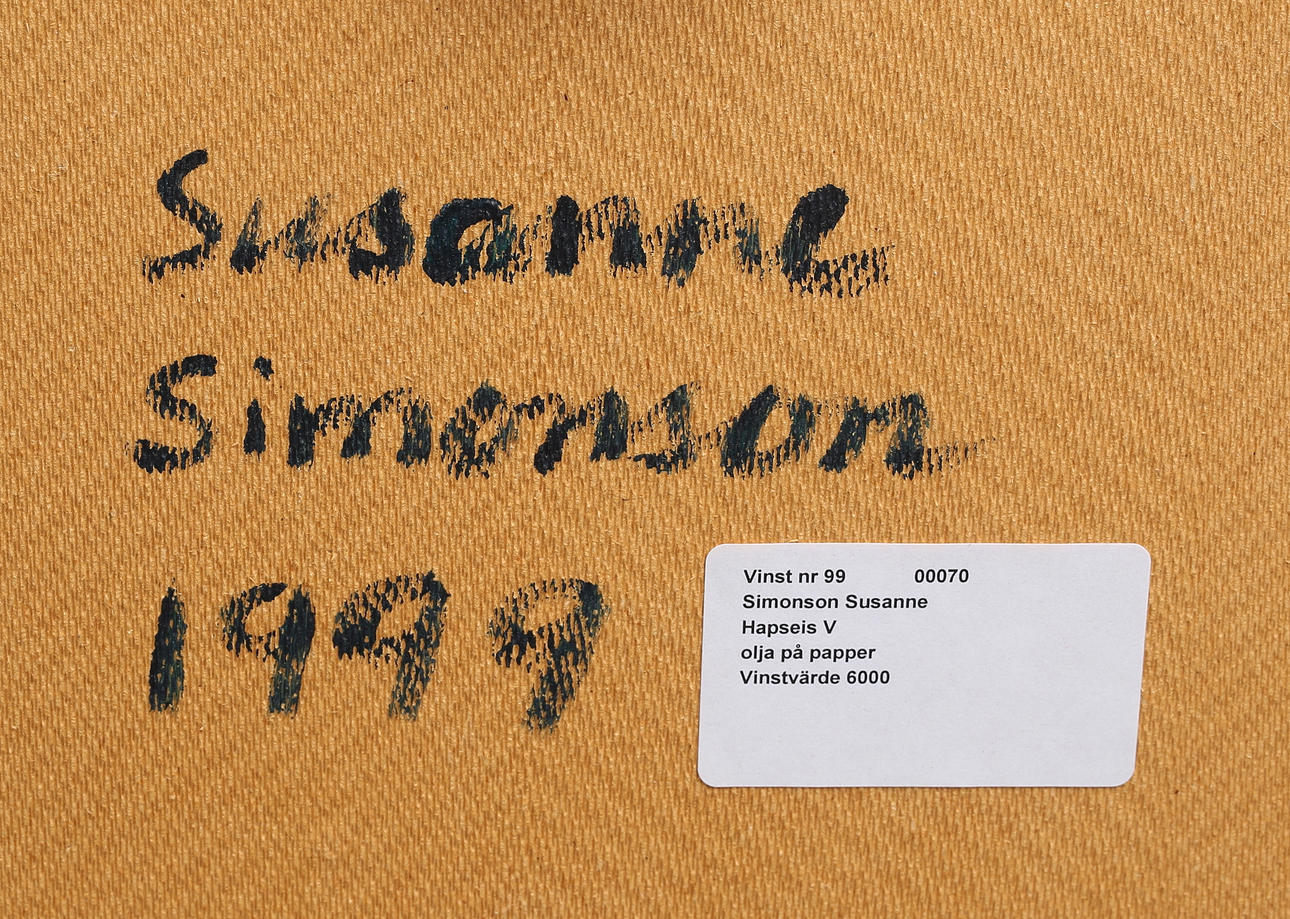 Susanne
Simonson
1999
Vinst nr 99 00070
Simonson Susanne
Hapseis V
olja på papper
Vinstvärde 6000